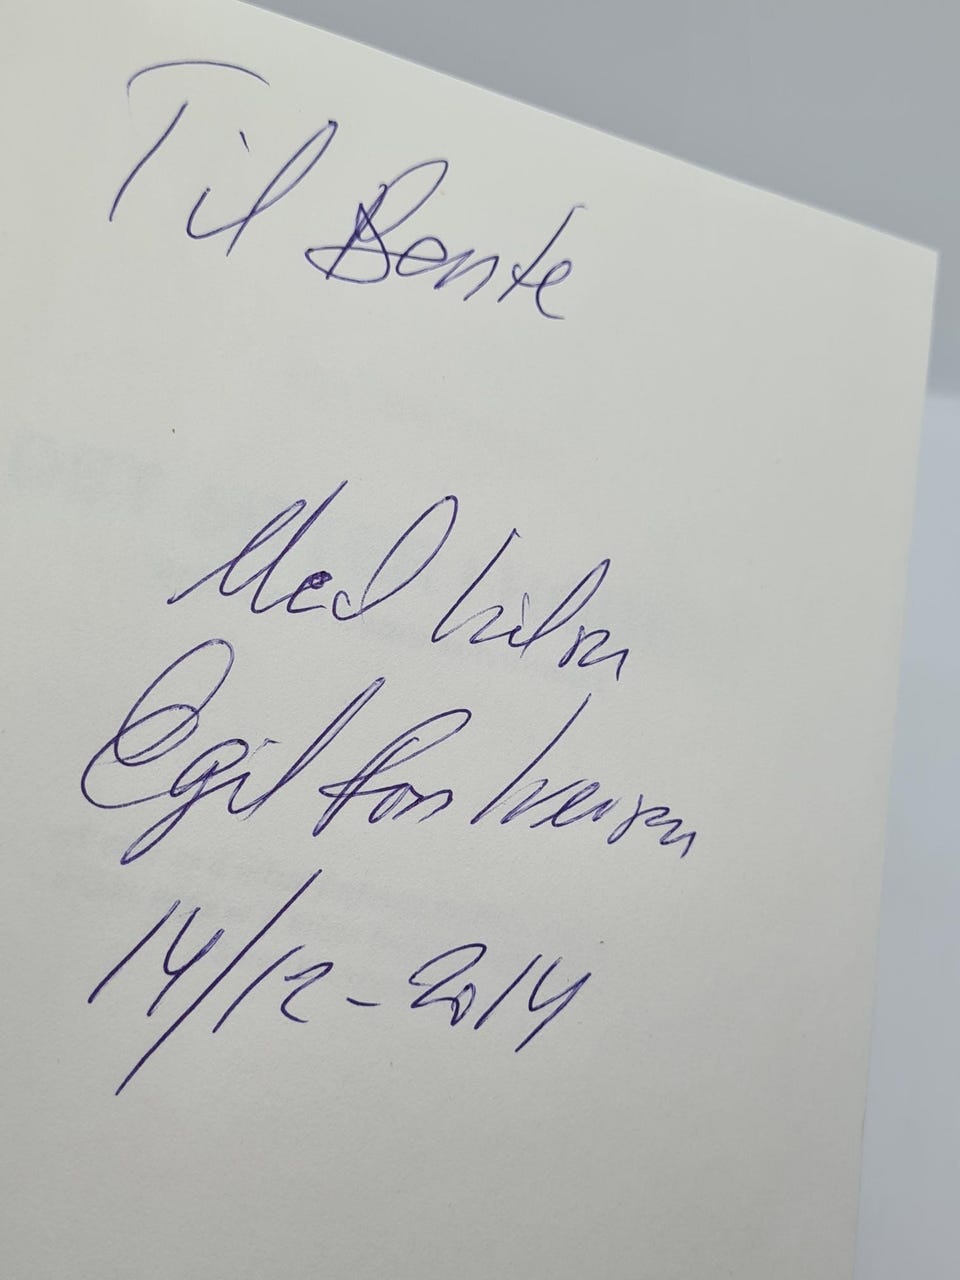 Til Bente
Med hilsen
Egil Foss Iversen
14/12-2014